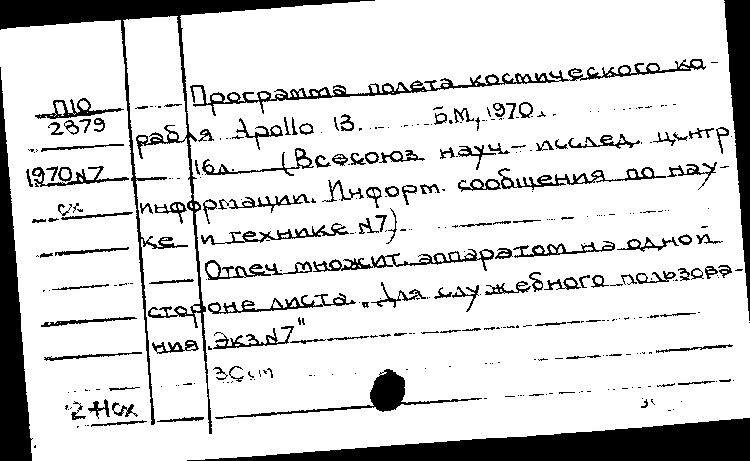 П10
2879
1970 N7
ох
Программа полета космического ка-
рабля Apollo 13. Б.М., 1970.
16л. (Всесоюз. науч.-исслед. центр
информации. Информ. сообщения по нау-
ке и технике N7).
Отпеч. множит. аппаратом на одной
стороне листа. "Для служебного пользова-
ния Экз. N7"
30 см
2+1ох